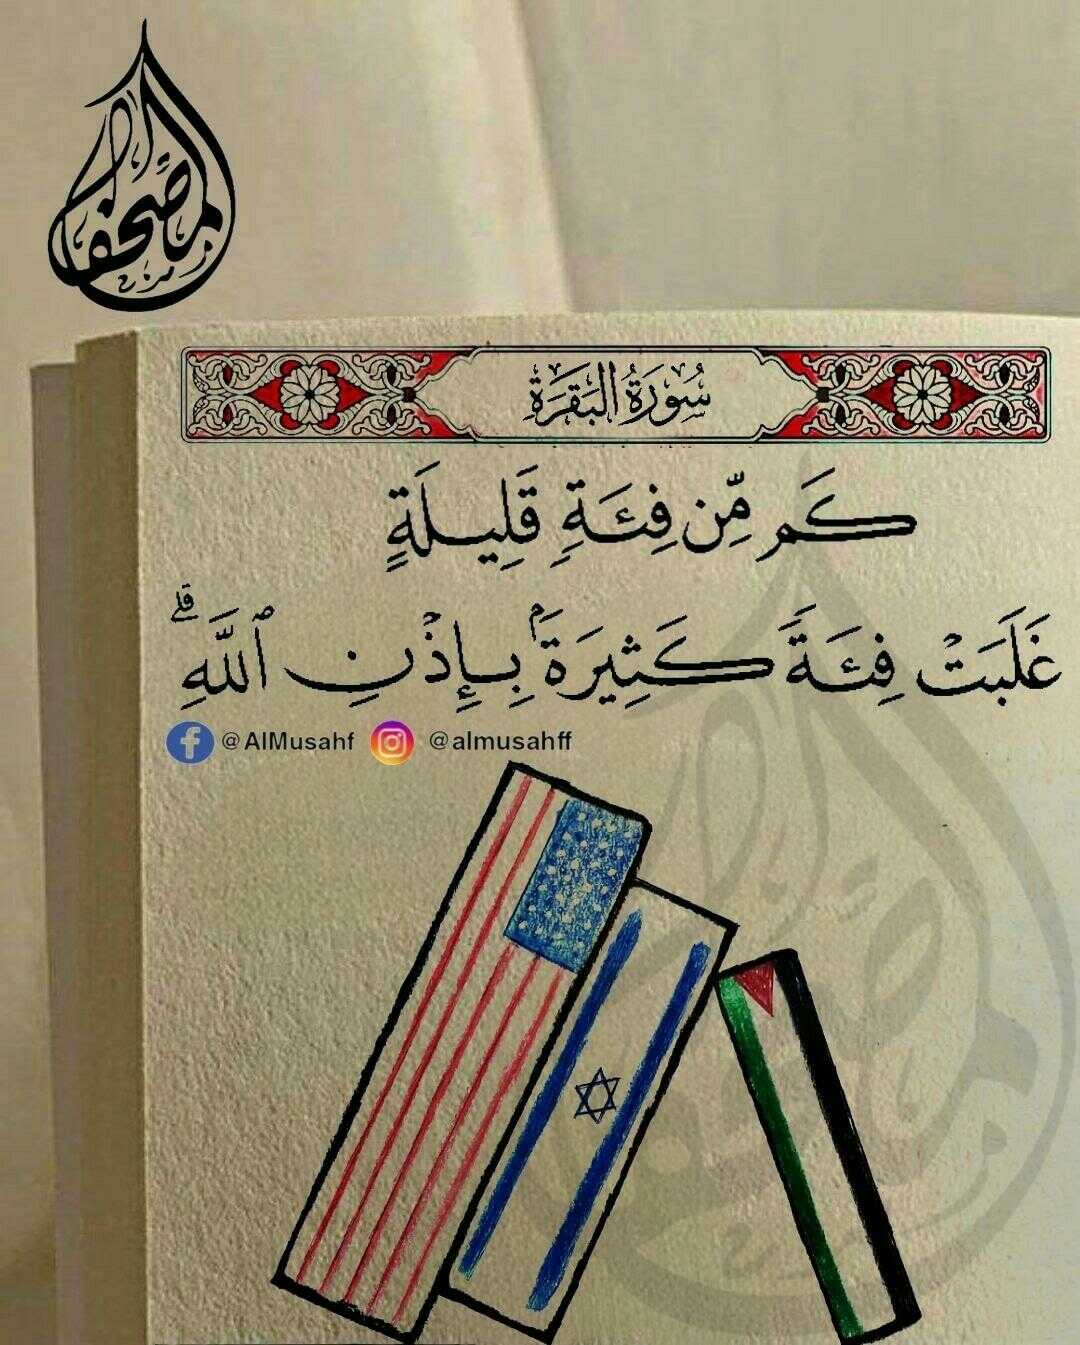 المصحف
سُورَةُ البَقَرَةِ
كَم مِّن فِئَةٍ قَلِيلَةٍ
غَلَبَتْ فِئَةً كَثِيرَةَۢ بِإِذْنِ ٱللَّهِۗ
@AlMusahf @almusahff